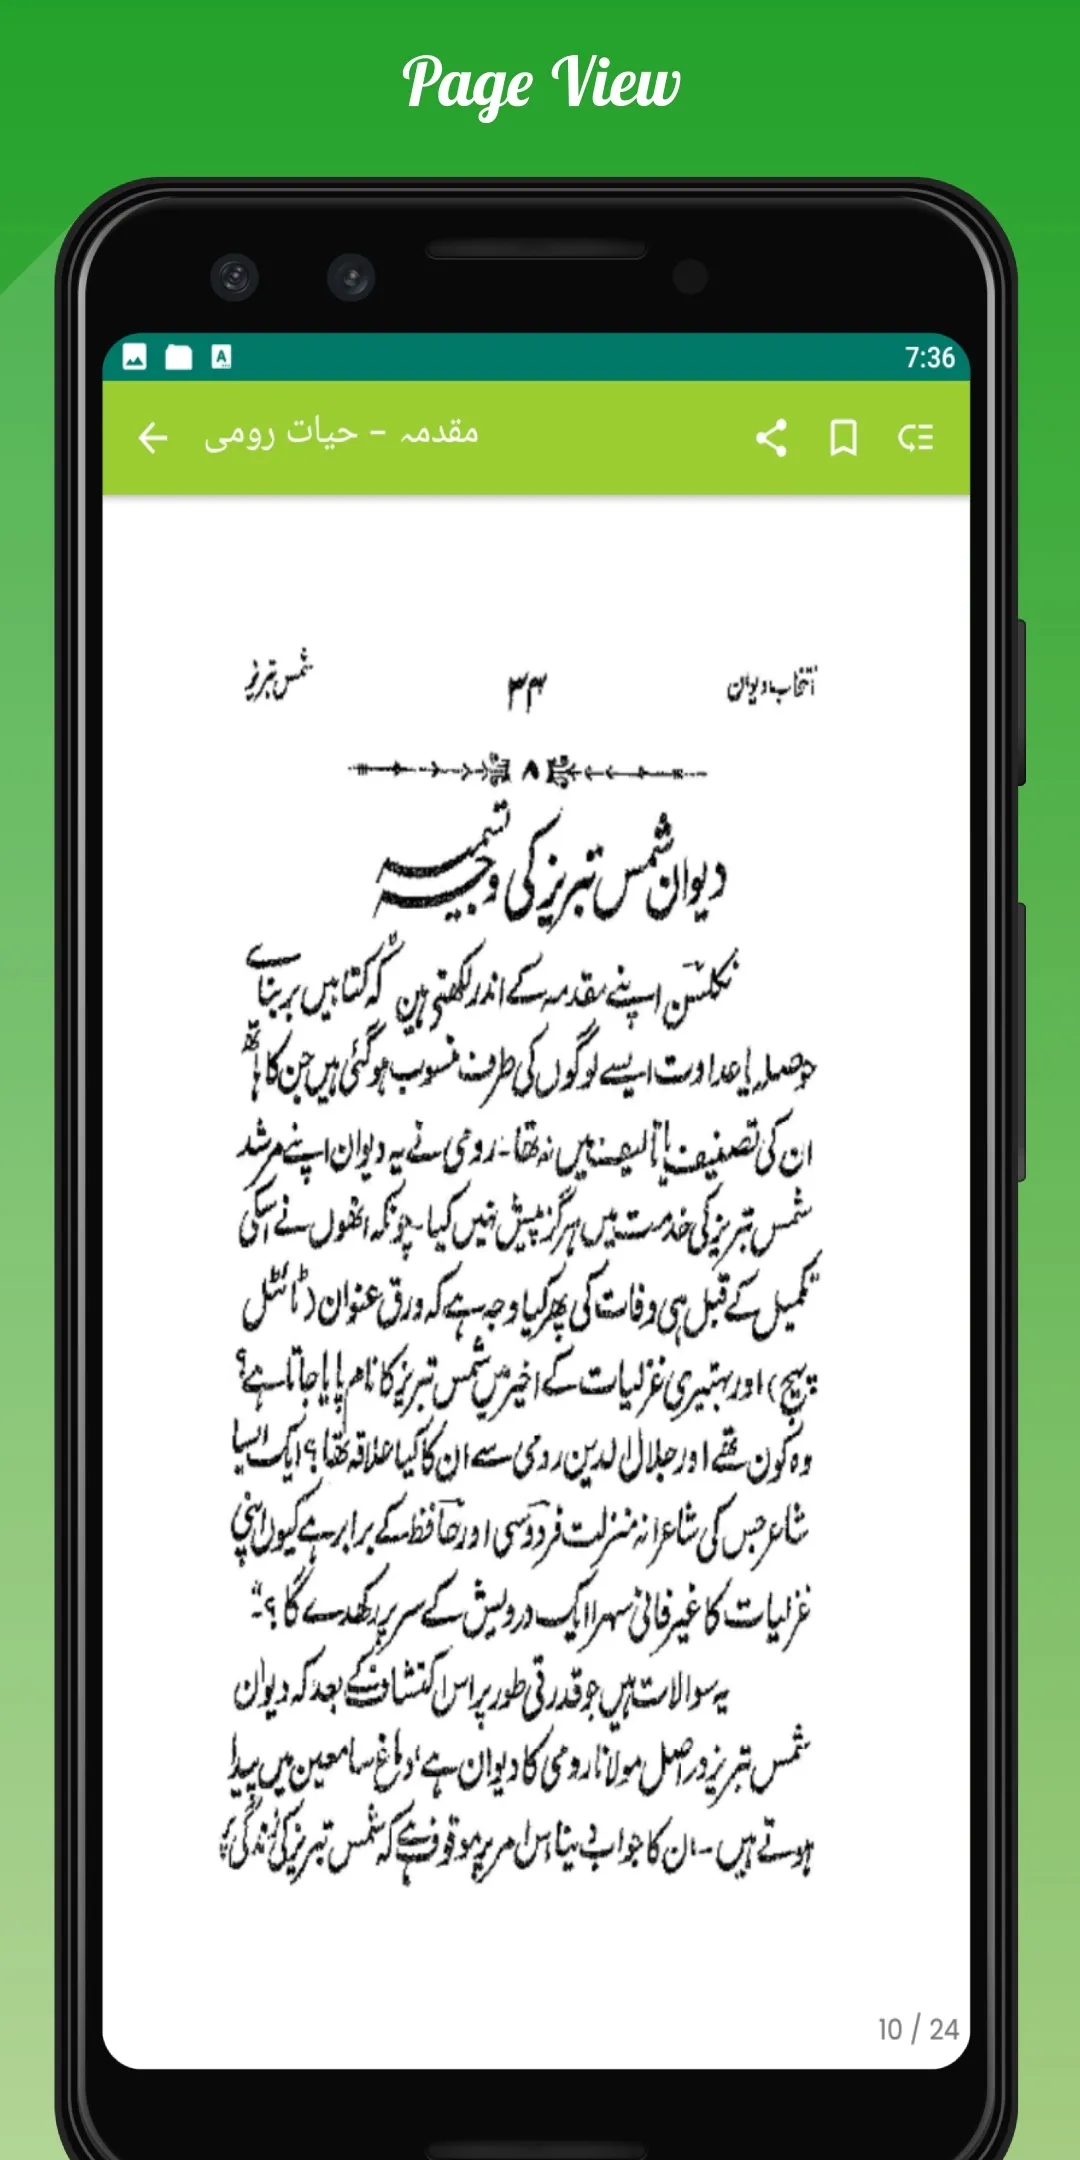 Page View
7:36
مقدمہ – حیات رومی
انتخاب دیوان ۳۴ شمس تبریز
۸
دیوان شمس تبریز کی وجہ تسمیہ
نکلسن اپنے مقدمہ کے اندر لکھتی ہین کہ کتابیں بر بنائے
حوصلہ یا عداوت ایسے لوگوں کی طرف منسوب ہوگئی ہیں جن کا ہاتھ
ان کی تصنیف یا تالیف میں نہ تھا۔ رومی نے یہ دیوان اپنے مرشد
شمس تبریز کی خدمت میں ہرگز پیش نہیں کیا۔ چونکہ انھوں نے اسکی
تکمیل کے قبل ہی وفات کی پھر کیا وجہ ہے کہ ورق عنوان (ٹائٹل
پیج) اور بہتیری غزلیات کے اخیر میں شمس تبریز کا نام پایا جاتا ہے؟
وہ کون تھے اور جلال الدین رومی سے ان کا کیا علاقہ تھا؟ ایک ایسا
شاعر جس کی شاعرانہ منزلت فردوسی اور حافظ کے برابر ہے کیوں اپنی
غزلیات کا غیر فانی سہرا ایک درویش کے سر پر رکھدے گا؟"
یہ سوالات ہیں جو قدرتی طور پر اس اکتشاف کے بعد کہ دیوان
شمس تبریز دراصل مولانا رومی کا دیوان ہے، دماغ سامعین میں پیدا
ہوتے ہیں۔ ان کا جواب دینا اس امر پر موقوف ہے کہ شمس تبریز کی زندگی پر
10 / 24